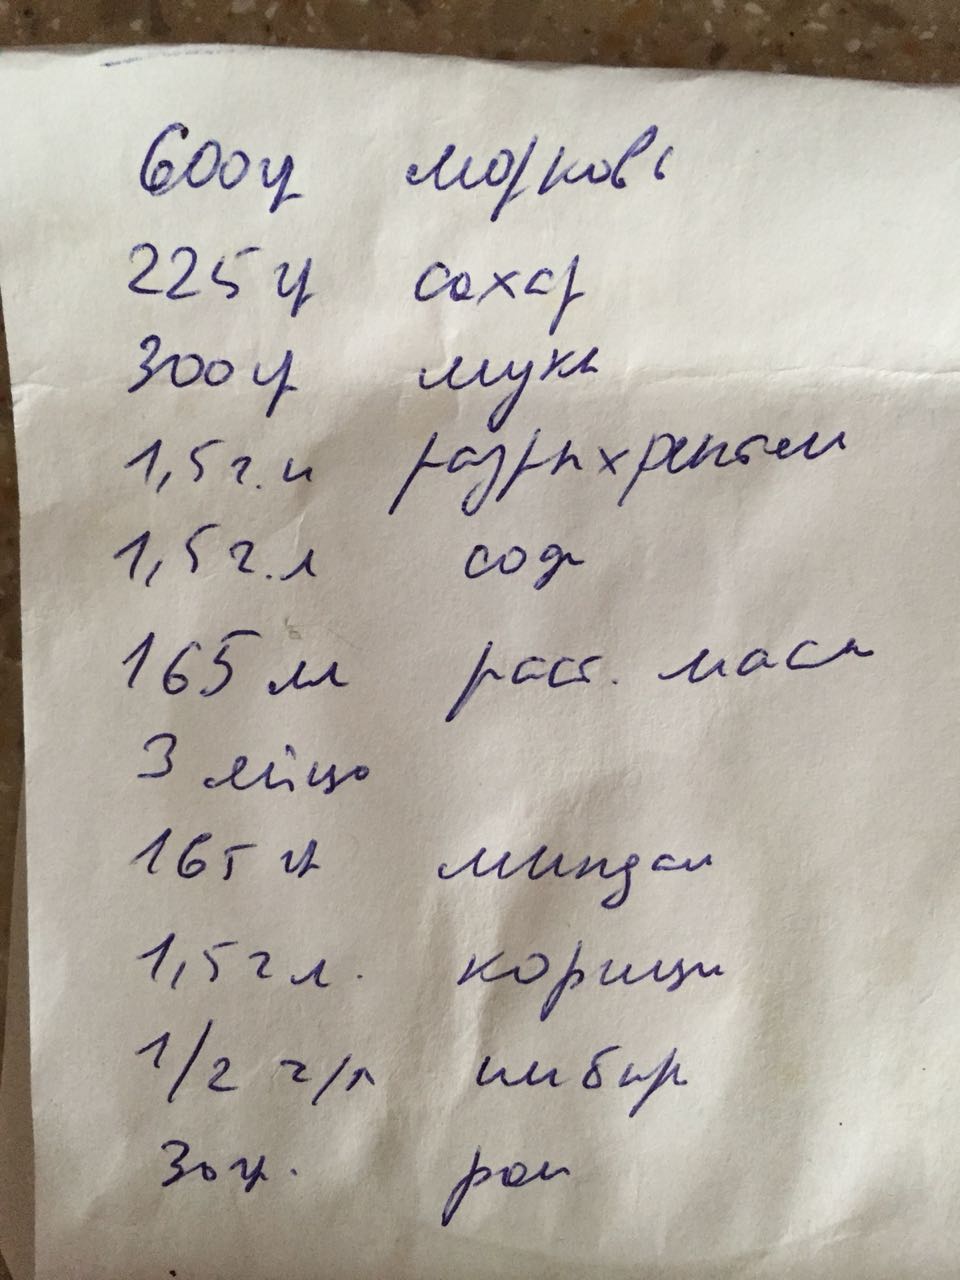 600гр морковь
225 гр сахар
300гр мука
1,5 ч.л разрыхлитель
1,5 ч.л сода
165 мл раст. масла
3 яйцо
165 гр миндал
1,5 ч л. корици
1/2 ч/л имбир
30гр. ром